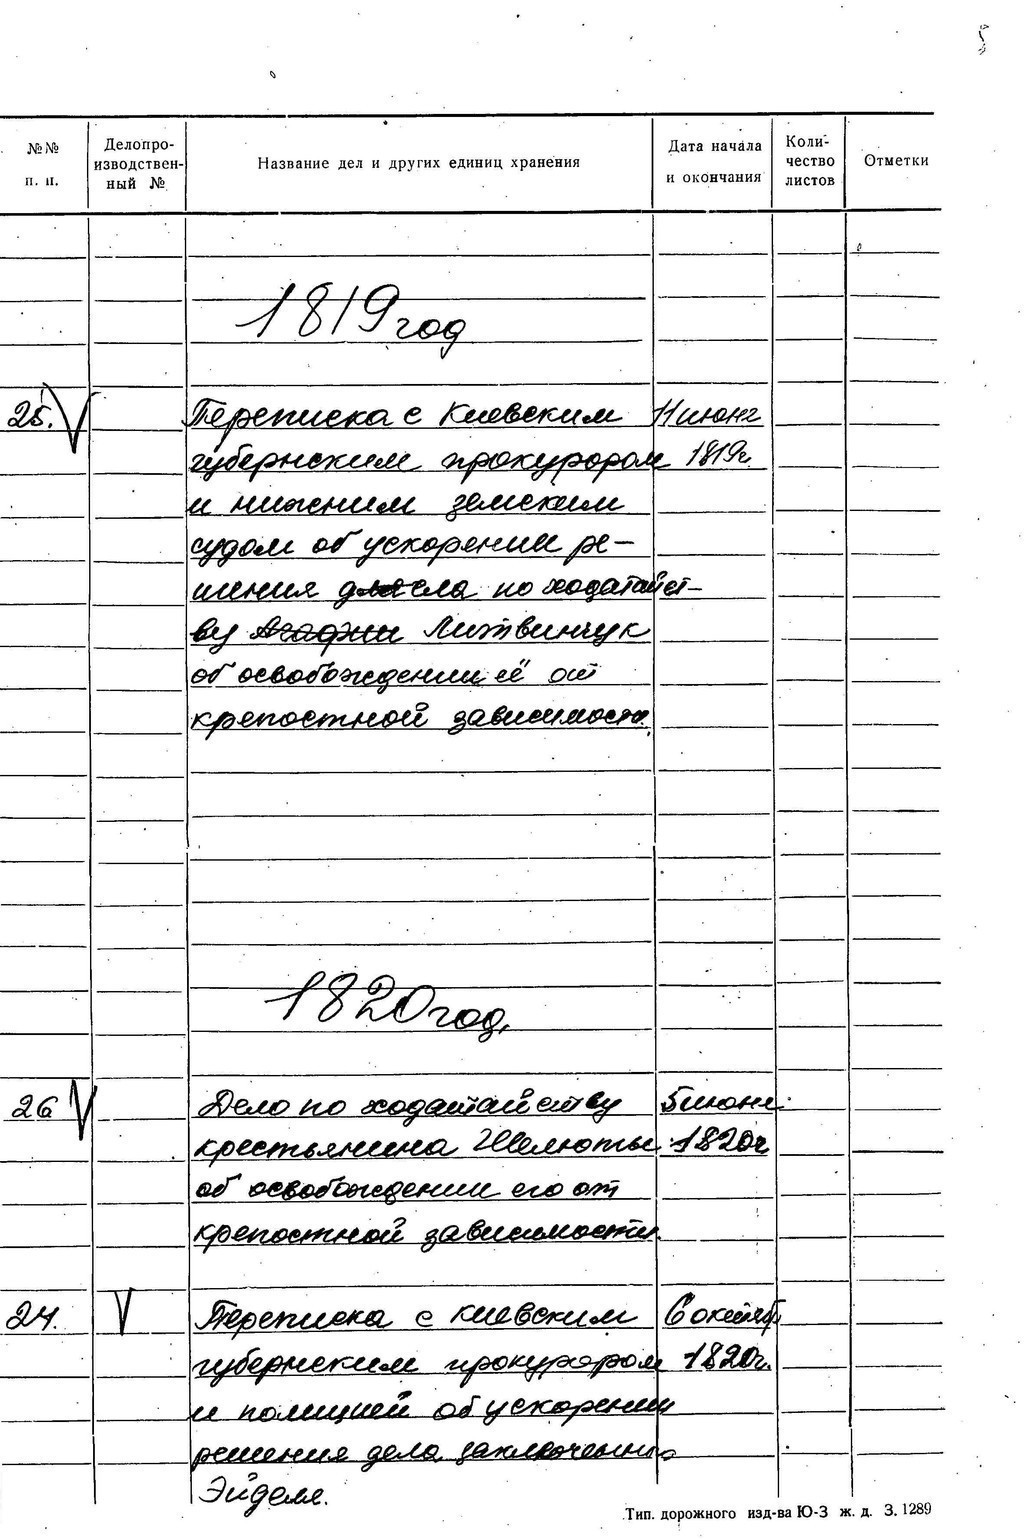 №№ п. п. Делопро-изводствен-ный № Название дел и других единиц хранения Дата начала и окончания Коли-чество листов Отметки
1819 год
25. V Переписка с Киевским 11 июня
губернским прокурором 1819г.
и нижним земским
судом об ускорении ре-
шения дела по ходатайст-
ву Агафии Литвинчук
об освобождении её от
крепостной зависимости.
1820 год.
26 V Дело по ходатайству 5 июня
крестьянина Шелюты 1820г.
об освобождении его от
крепостной зависимости.
27. V Переписка с киевским 6 октяб.
губернским прокурором 1820г.
и полицией об ускорении
решения дела заключенного
Эйделя.
Тип. дорожного изд-ва Ю-З ж. д. З. 1289